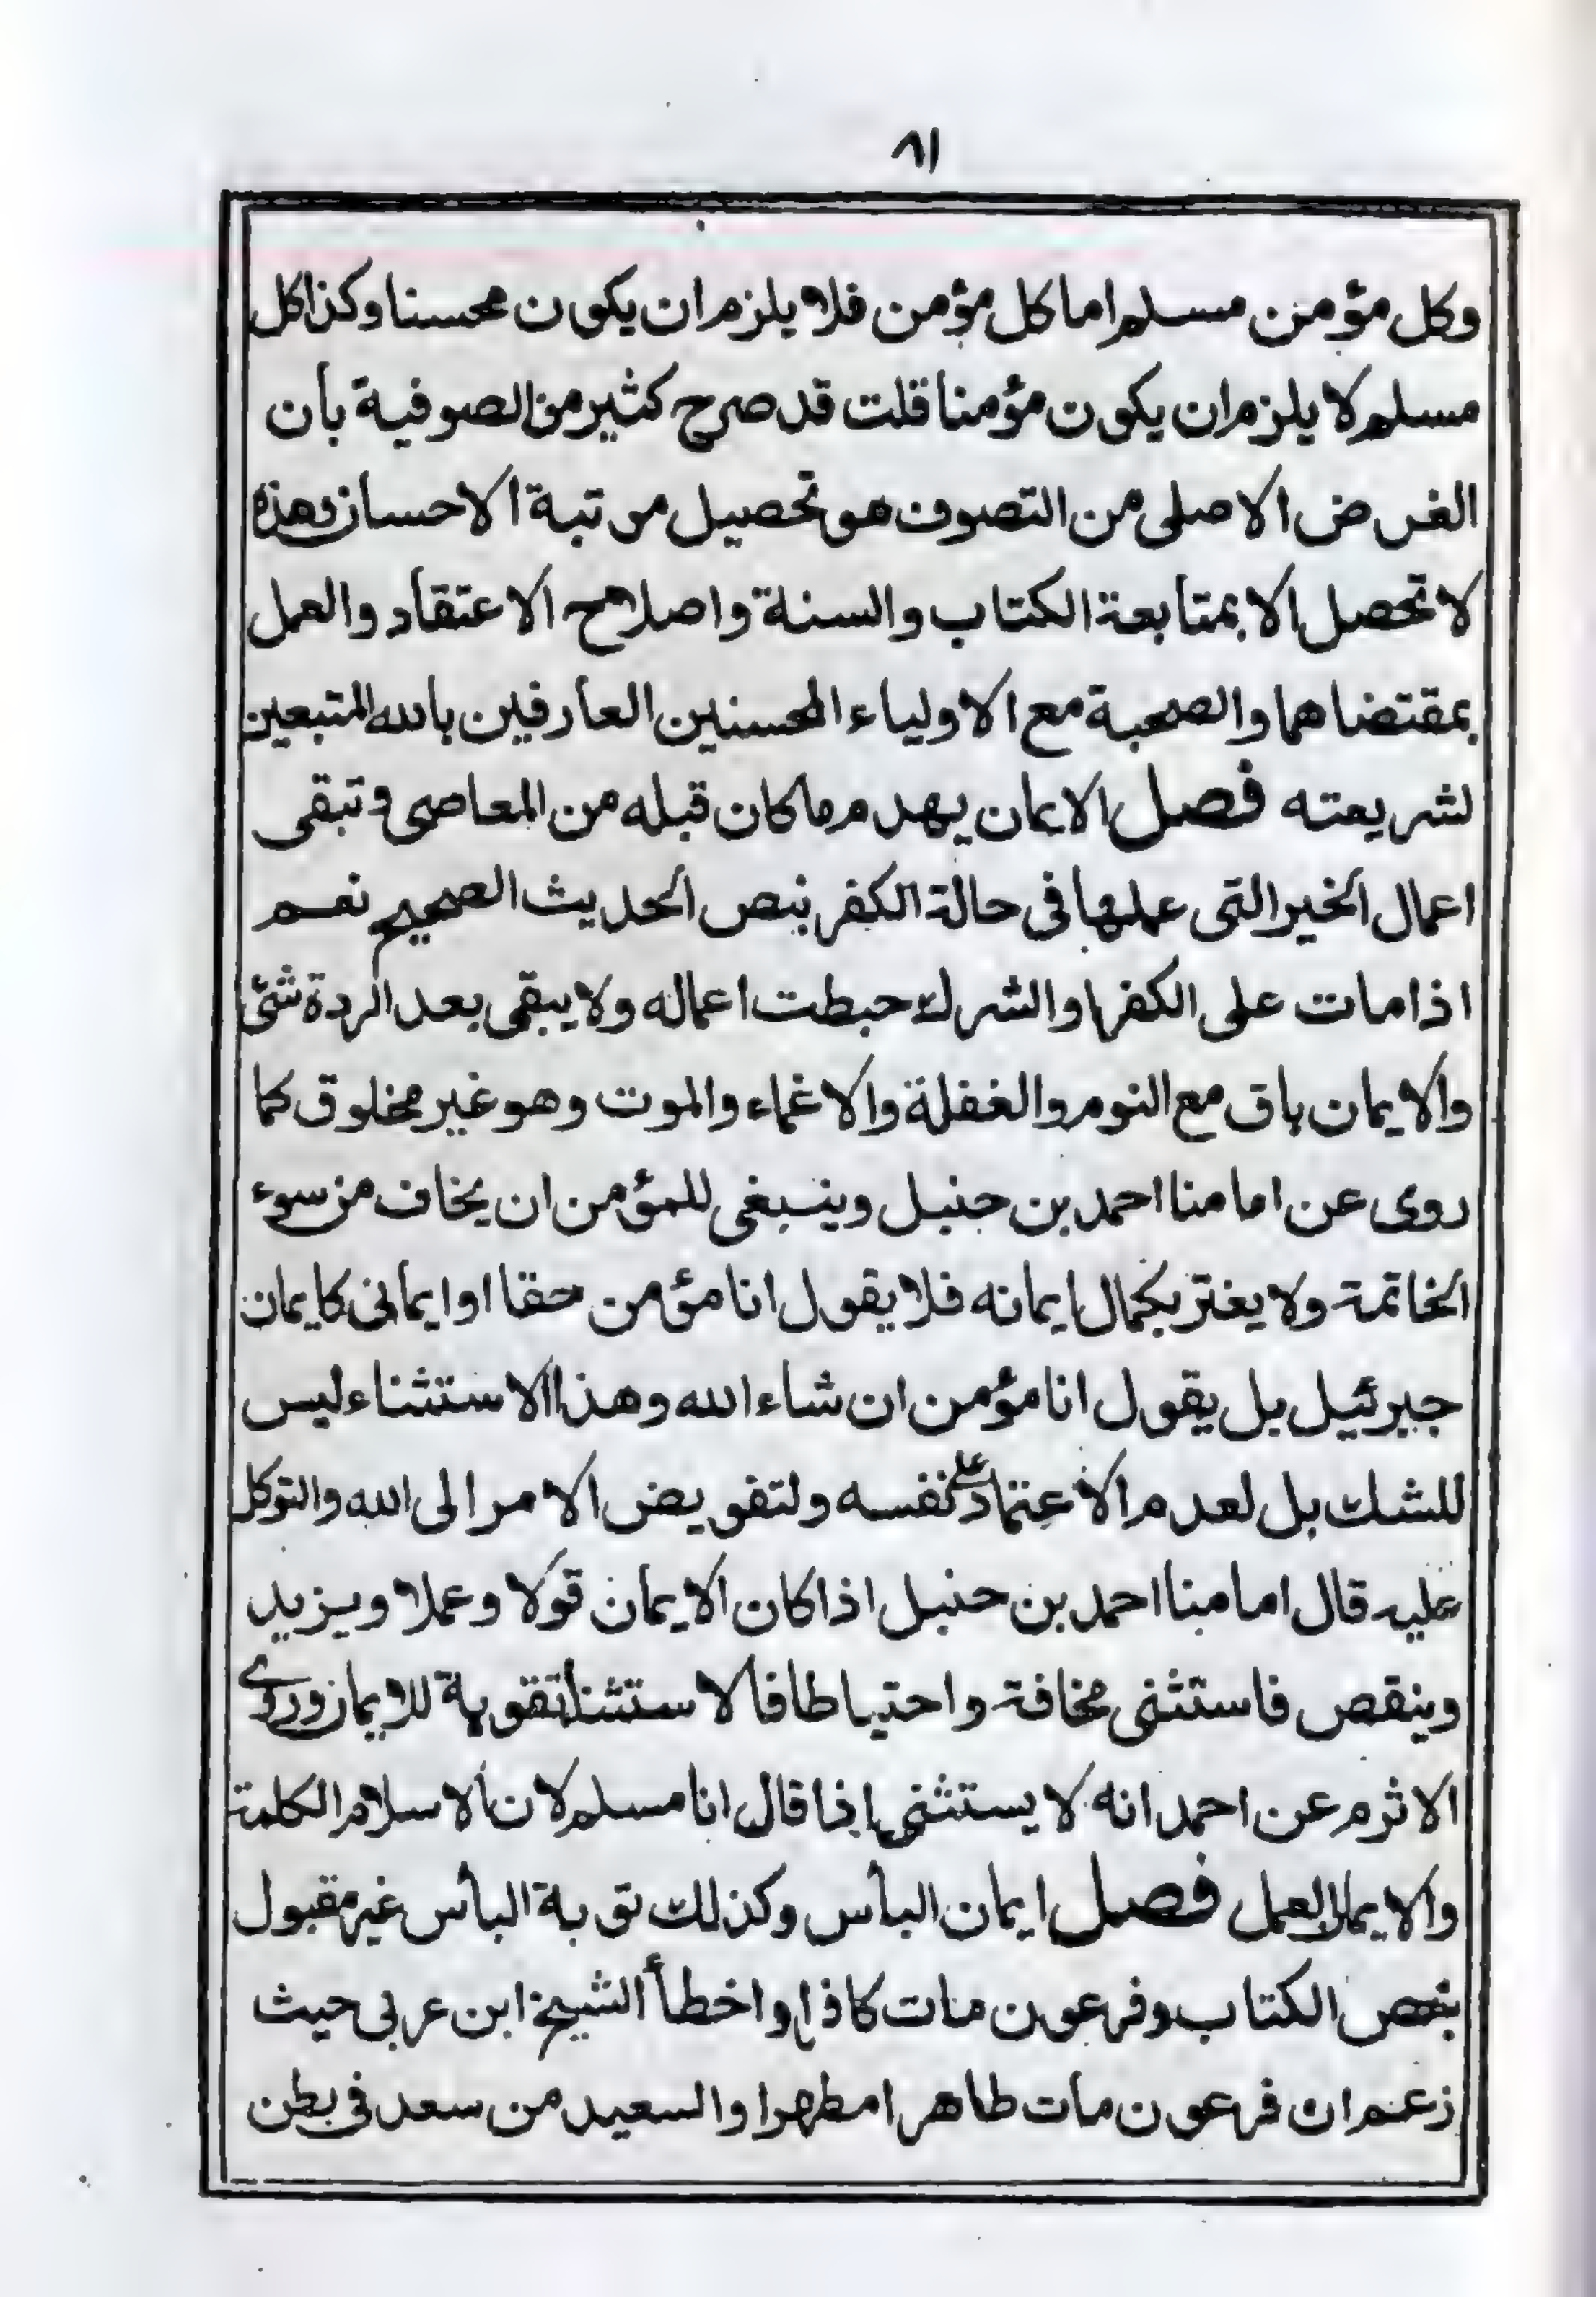 ٨١
وكل مؤمن مسلم اما كل مؤمن فلا يلزم ان يكون محسنا وكذا كل
مسلم لا يلزم ان يكون مؤمنا قلت قد صرح كثير من الصوفية بأن
الغرض الاصلى من التصوف هو تحصيل مرتبة الاحسان وهذه
لا تحصل الا بمتابعة الكتاب والسنة واصلاح الاعتقاد والعمل
بمقتضاهما والصحبة مع الاولياء المحسنين العارفين بالله المتبعين
لشريعته فصل الايمان يهدم ما كان قبله من المعاصى وتبقى
اعمال الخير التى عملها فى حالة الكفر بنص الحديث الصحيح نعم
اذا مات على الكفر او الشرك حبطت اعماله ولا يبقى بعد الردة شئ
والايمان باق مع النوم والغفلة والاغماء والموت وهو غير مخلوق كما
روى عن امامنا احمد بن حنبل وينبغى للمؤمن ان يخاف من سوء
الخاتمة ولا يغتر بكمال ايمانه فلا يقول انا مؤمن حقا او ايمانى كايمان
جبرئيل بل يقول انا مؤمن ان شاء الله وهذا الاستثناء ليس
للشك بل لعدم الاعتماد على نفسه ولتفويض الامر الى الله والتوكل
عليه قال امامنا احمد بن حنبل اذا كان الايمان قولا وعملا ويزيد
وينقص فاستثنى مخافة واحتياطا فالاستثنا تقوية للايمان وروى
الاثرم عن احمد انه لا يستثنى اذا قال انا مسلم لان الاسلام الكلمة
والايمان العمل فصل ايمان البأس وكذلك توبة البأس غير مقبول
بنص الكتاب وفرعون مات كافرا واخطأ الشيخ ابن عربى حيث
زعم ان فرعون مات طاهرا مطهرا والسعيد من سعد فى بطن